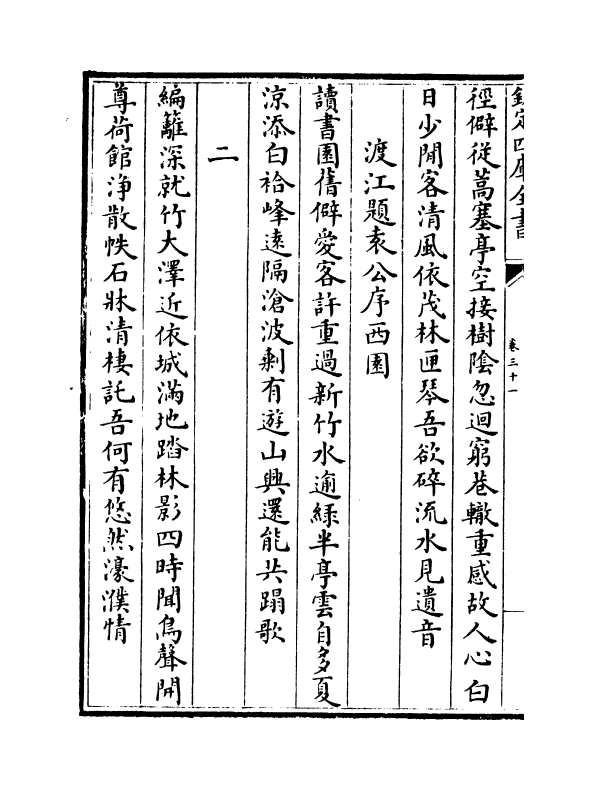 欽定四庫全書
卷三十一
徑僻從蒿塞亭空接樹陰忽迴窮巷轍重感故人心白
日少閒客清風依茂林匣琴吾欲碎流水見遺音
渡江題袁公序西園
讀書園舊僻愛客許重過新竹水逾緑半亭雲自多夏
涼添白袷峰遠隔滄波剩有遊山興還能共蹋歌
二
編籬深就竹大澤近依城滿地踏林影四時聞鳥聲開
尊荷館浄散帙石牀清棲託吾何有悠然濠濮情